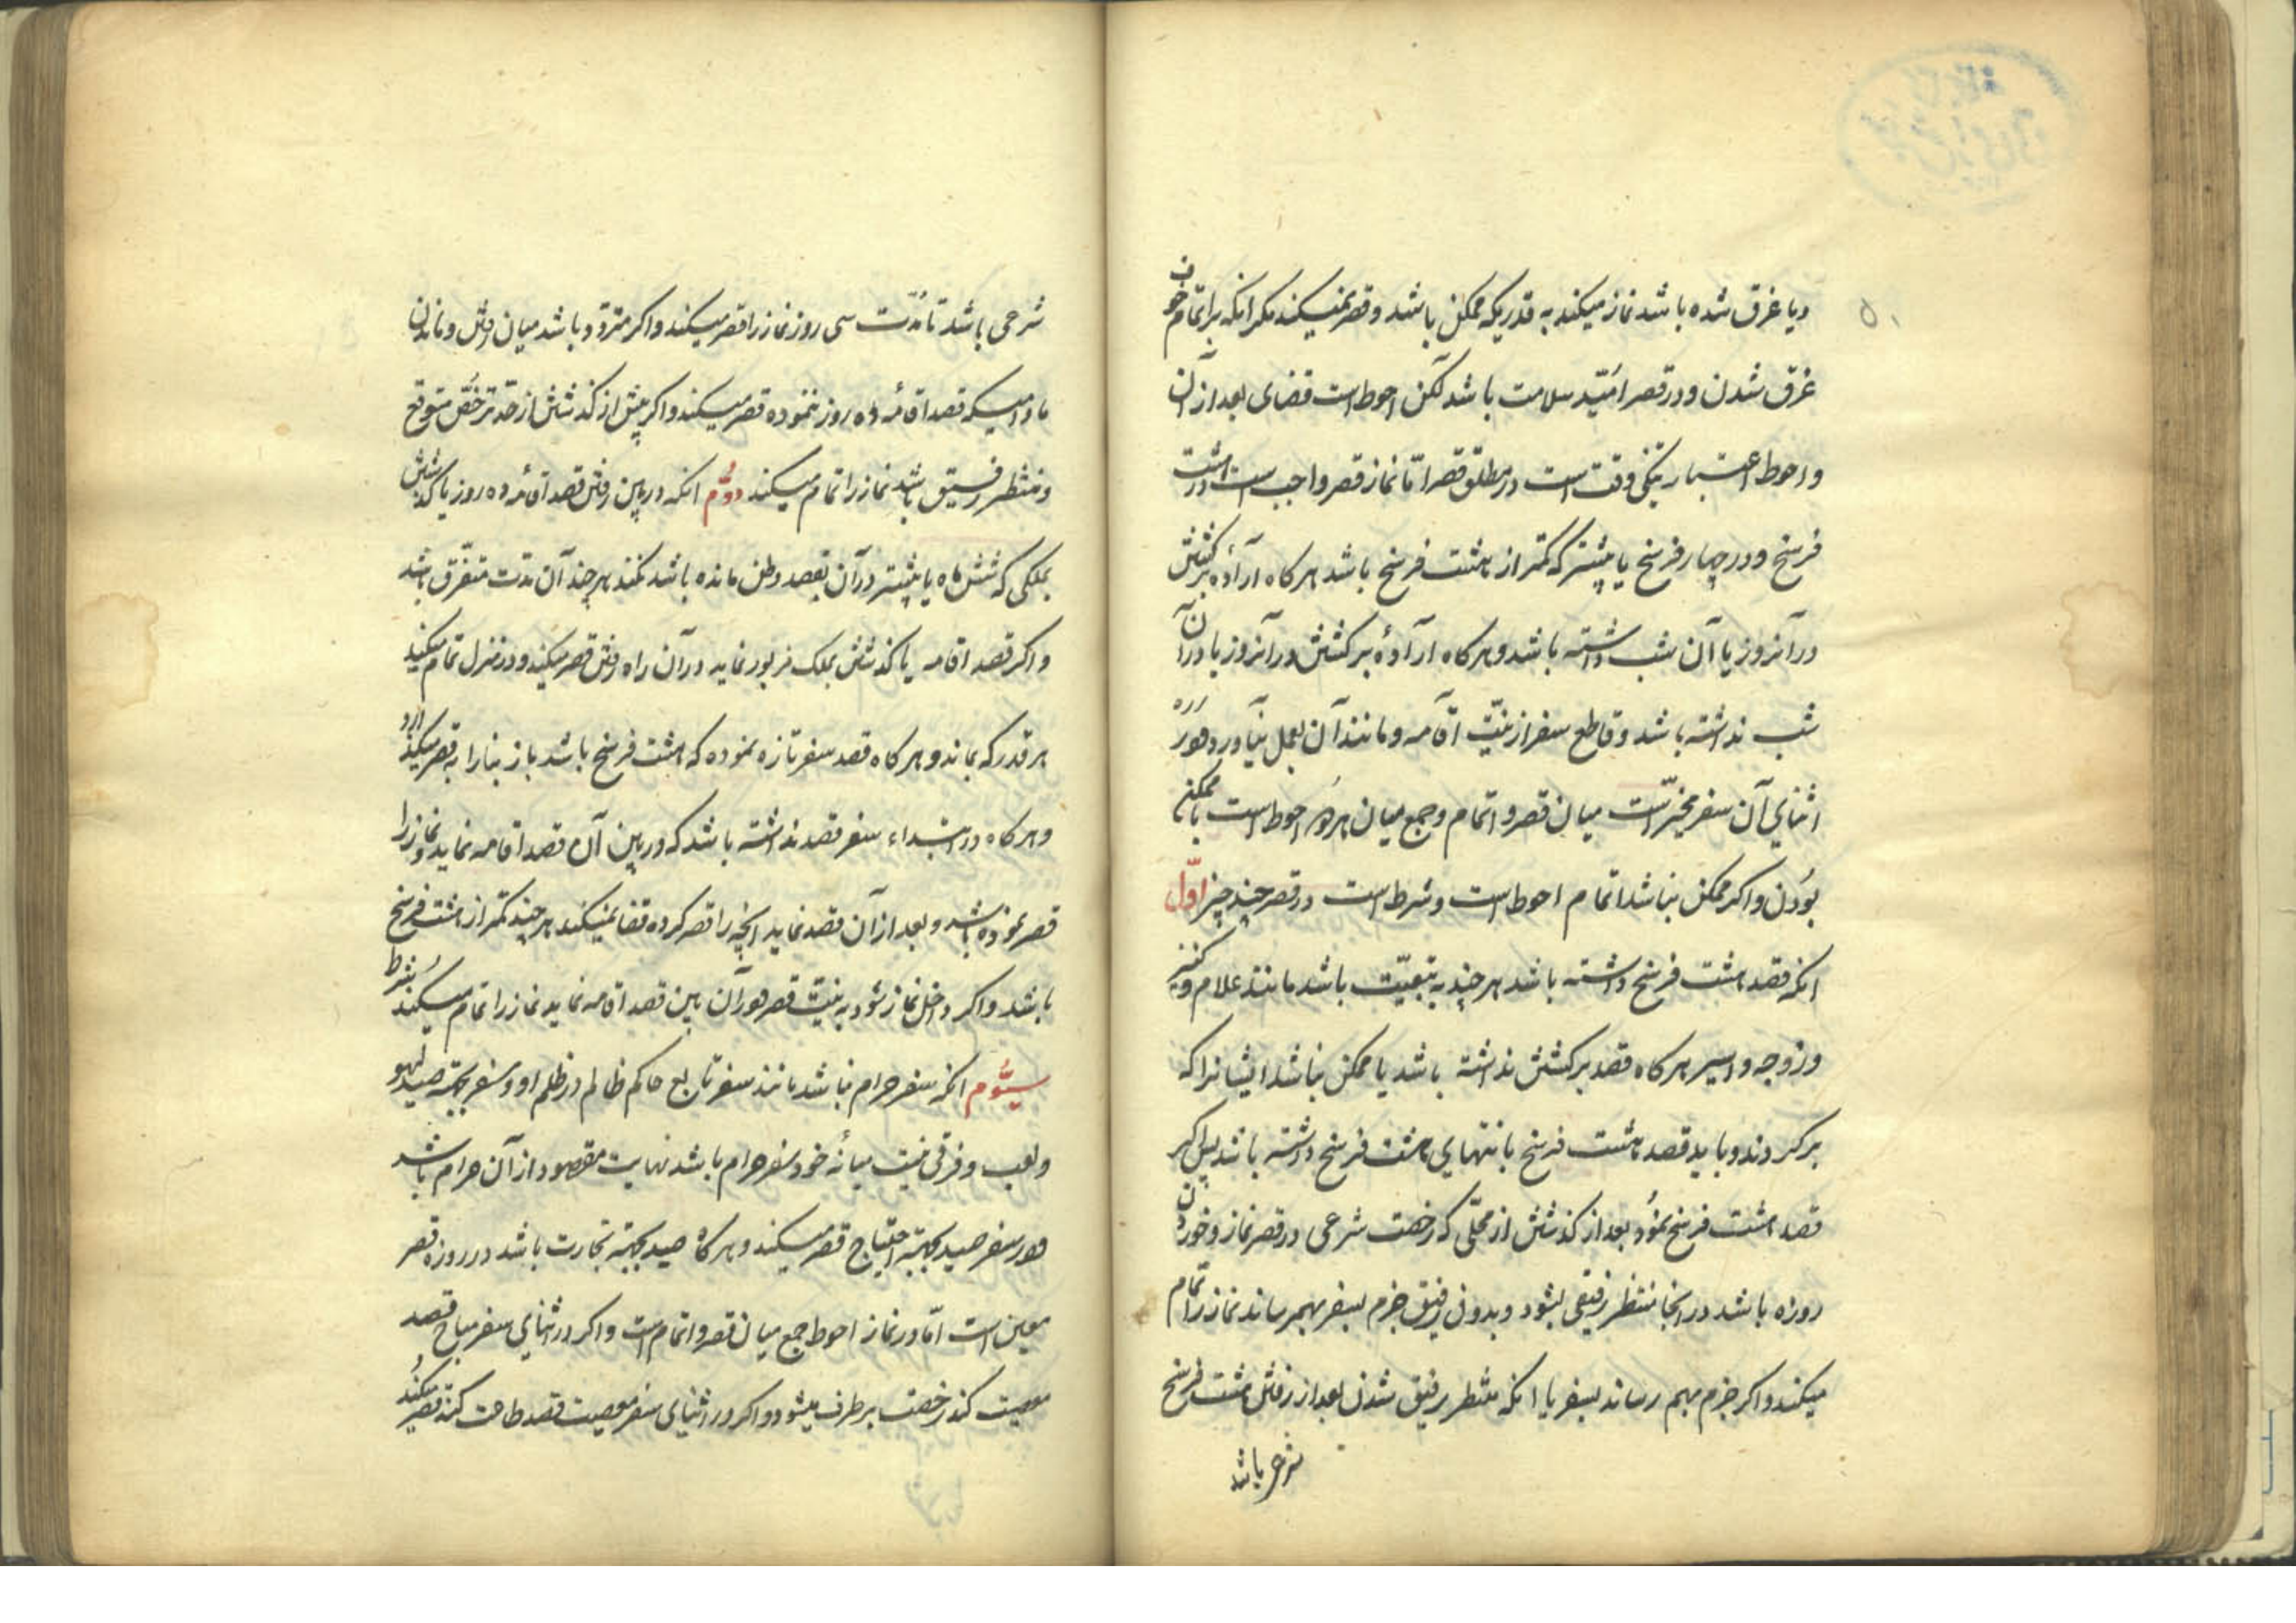 و یا غرق شده باشد نماز میکند به قدریکه ممکن باشد و قصر نمیکند مکر انکه بر اتمام خوف
غرق شدن و در قصر امّید سلامت باشد لکن احوط است قضای بعد از آن
و احوط اعتبار تنکی وقت است در مطلق قصر امّا نماز قصر واجب است در هشت
فرسخ و در چهار فرسخ یا بیشتر که کمتر از هشت فرسخ باشد هر کاه ارآدهٔ برکشتن
در آنروز یا آن شب داشته باشد و هر کاه ارآدهٔ برکشتن در آنروز یا در آن
شب نداشته باشد و قاطع سفر از نیّت اقآمه و مانند آن بعمل نیآورد در
اثنای آن سفر مخیّر است میان قصر و اتمام و جمع میان هر دو احوط است با ممکن
بودن و اکر ممکن نباشد اتمام احوط است و شرط است در قصر چند چیز اوّل
انکه قصد هشت فرسخ داشته باشد هر چند به تبعیّت باشد مانند غلام و کنیز
و زوجه و اسیر هر کاه قصد برکشتن نداشته باشد یا ممکن نباشد ایشانرا که
برکردند و باید قصد هشت فرسخ با نتهای هشت فرسخ داشته باشد پس اکر
قصد هشت فرسخ نمود بعد از کذشتن از محلّی که رخصت شرعی در قصر نماز و خوردن
روزه باشد در انجا منتظر رفیقی بشود و بدون رفیق جزم بسفر بهم رساند نماز را تمام
میکند و اکر جزم بهم رساند بسفر یا انکه منتظر رفیق شدن بعد از رفتن هشت فرسخ
شرعی باشد
شرعی باشد تا مدّت سی روز نماز را قصر میکند و اکر متردّد باشد میان رفتن و ماندن
مادامیکه قصد اقامهٔ ده روز ننموده قصر میکند و اکر پیش از کذشتن از حدّ ترخّص متوقع
و منتظر رفیق باشد نماز را تمام میکند دوّم انکه در بین رفتن قصد اقامهٔ ده روز یا کذشتن
بملکی که شش ماه یا بیشتر در آن بقصد وطن مانده باشد نکند هر چند آن مدّت متفرّق باشد
و اکر قصد اقامه یا کذشتن بملک مزبور نماید در آن راه رفتن قصر میکند و در منزل تمام میکند
هر قدر که بماند و هر کاه قصد سفر تازه نموده که هشت فرسخ باشد باز بنا را به قصر میکذارد
و هر کاه در ابتداء سفر قصد نداشته باشد که در بین آن قصد اقامه نماید و نماز را
قصر نموده باشد و بعد از آن قصد نماید انچه را قصر کرده قضا نمیکند هر چند کمتر از هشت فرسخ
باشد و اکر داخل نماز شود به نیّت قصر و در آن بین قصد اقامه نماید نماز را تمام میکند شرط
سیّوم انکه سفر حرام نباشد مانند سفر تابع حاکم ظالم در ظلم او و سفر بجهته صید لهو
و لعب و فرقی نیست میانه خود سفر حرام باشد نهایت مقصود از آن حرام باشد
و در سفر صید بجهته احتیاج قصر میکند و هر کاه صید بجهته تجارت باشد در روزه قصر
معین است امّا در نماز احوط جمع میان قصر و اتمام است و اکر در اثنای سفر مباح قصد
معصیت کند رخصت بر طرف میشود و اکر در اثنای سفر معصیت قصد طاعت کند قصر میکند